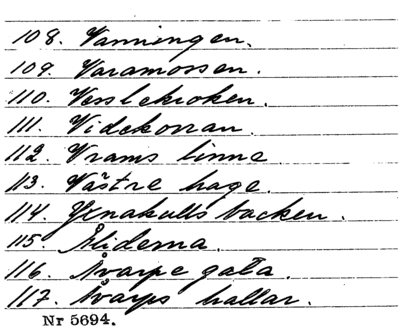 108. Vanningen.
109. Varamossen.
110. Vesslekroken.
111. Videkorran.
112. Vrams linne
113. Västre hage.
114. Yenakulls backen.
115. Åliderna.
116. Åvarpe gata.
117. Åvarps hallar.
Nr 5694.